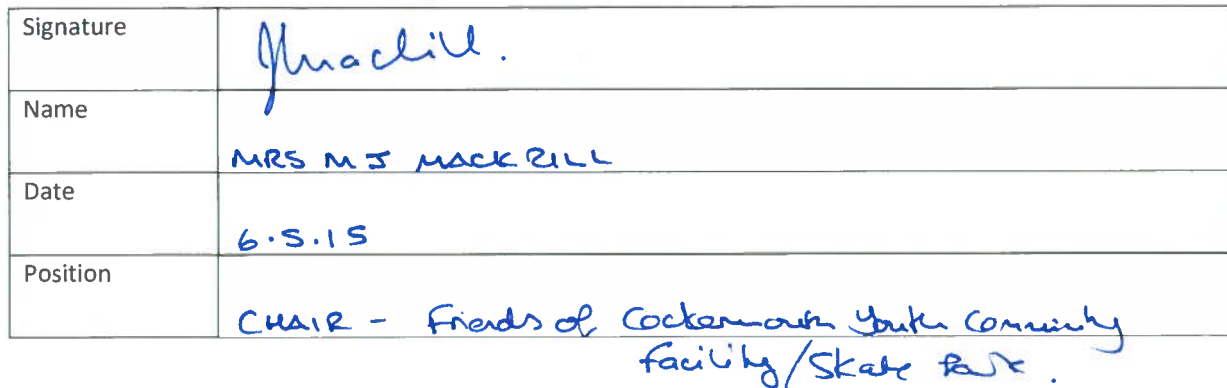 Signature
JMackrill.
Name
MRS M J MACKRILL
Date
6.5.15
Position
CHAIR - Friends of Cockermouth Youth Community
Facility/Skate Park.